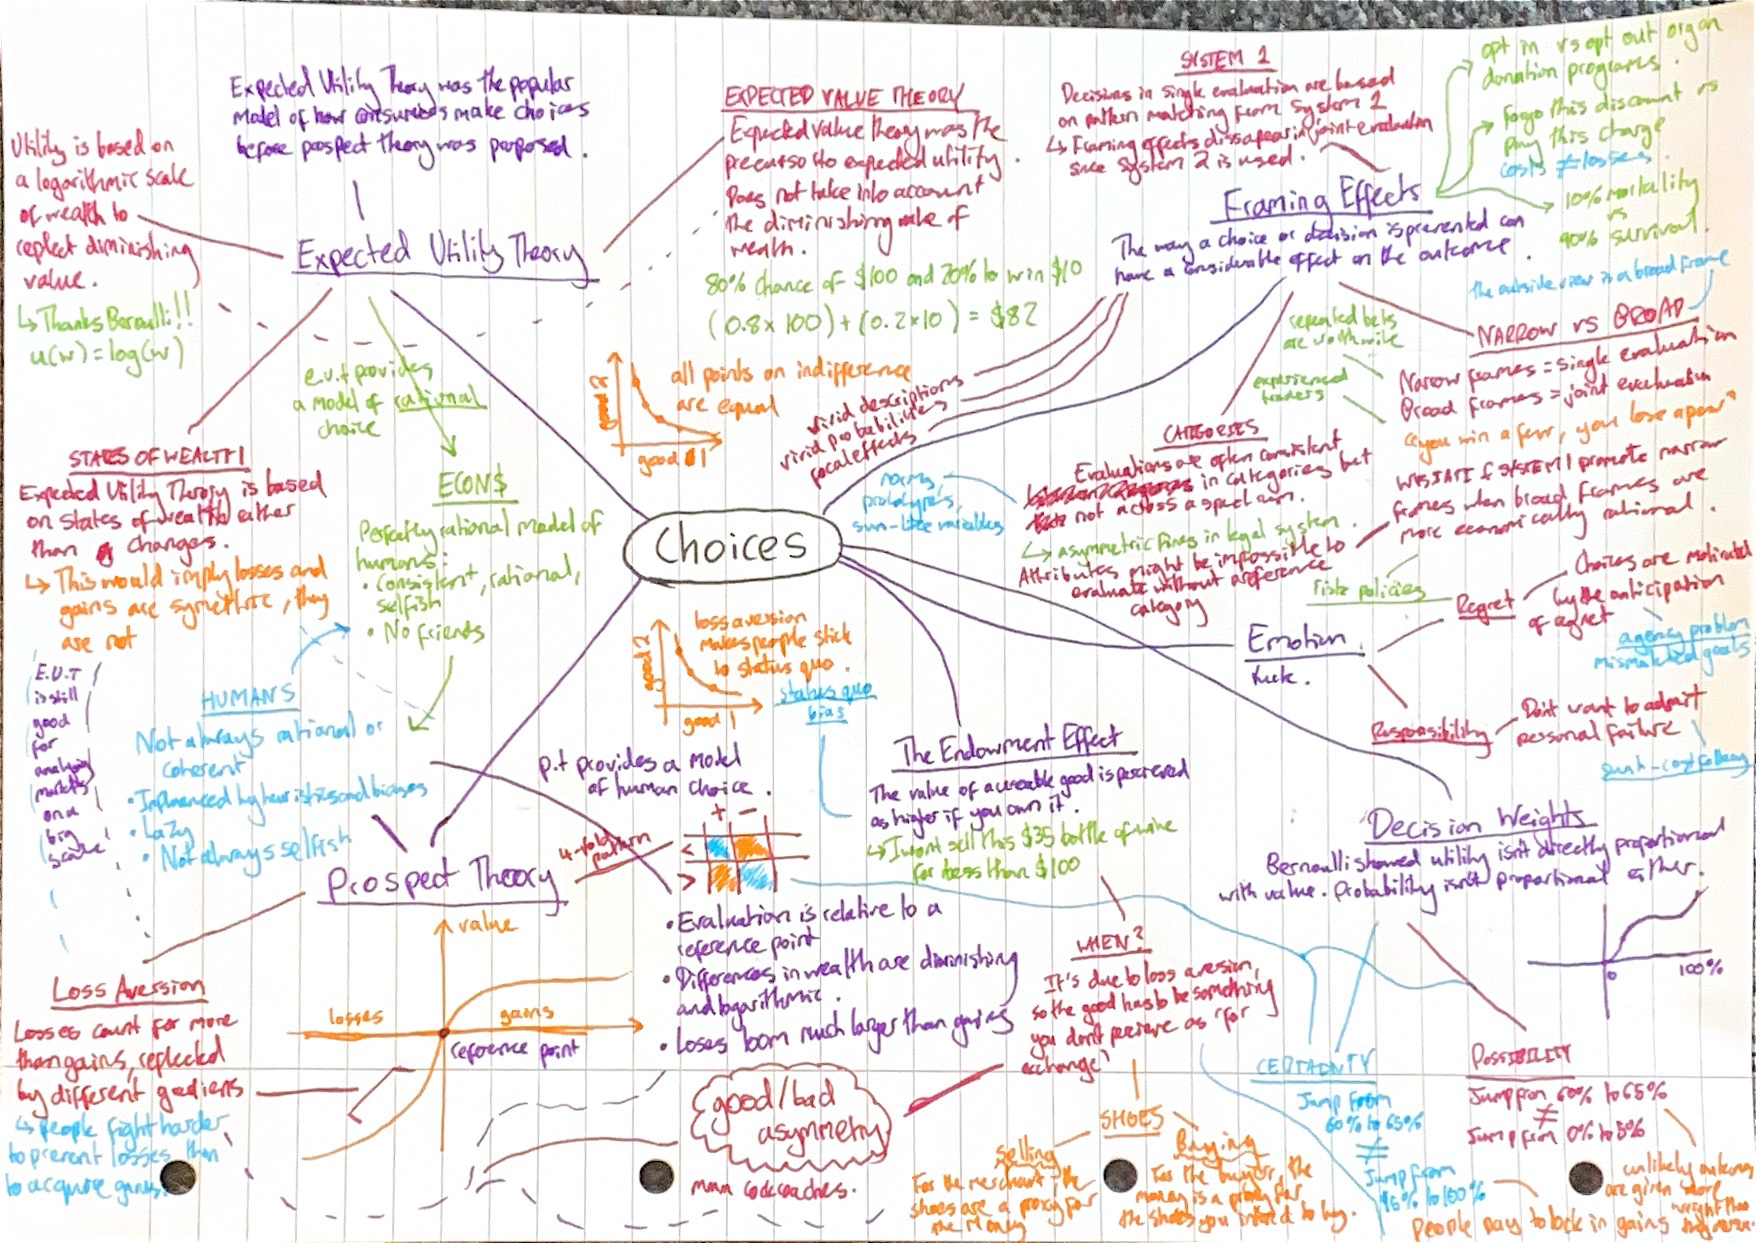 Expected Utility Theory was the popular
model of how consumers make choices
before prospect theory was proposed.
Utility is based on
a logarithmic scale
of wealth to
reflect diminishing
value.
↳ Thanks Bernoulli!!
u(w) = log(w)
Expected Utility Theory
EXPECTED VALUE THEORY
Expected value theory was the
precursor to expected utility.
Does not take into account
the diminishing value of
wealth.
80% chance of $100 and 20% to win $10
(0.8 x 100) + (0.2 x 10) = $82
SYSTEM 1
Decisions in single evaluation are based
on pattern matching from System 1
↳ Framing effects dissapear in joint evaluation
since System 2 is used.
opt in vs opt out organ
donation programs.
Forgo this discount vs
pay this charge
costs ≠ losses
10% mortality
vs
90% survival.
Framing Effects
The way a choice or decision is presented can
have a considerable effect on the outcome.
the outside view is a broad frame
NARROW VS BROAD
Narrow frames = single evaluation
Broad frames = joint evaluation
"you win a few, you lose a few"
WYSIATI & SYSTEM 1 promote narrow
frames when broad frames are
more economically rational.
repeated bets
are worthwhile
experienced
traders
risk policies
e.u.t provides
a model of rational
choice
good 2
good 1
all points on indifference
are equal
vivid descriptions
vivid probabilities
focal effects
CATEGORIES
Evaluations are often consistent
in categories but
not across a spectrum.
↳ asymmetric fines in legal system.
Attributes might be impossible to
evaluate without a reference
category
norms,
prototypes,
sum-like variables
STATES OF WEALTH
Expected Utility Theory is based
on states of wealth either
than changes.
↳ This would imply losses and
gains are symethric, they
are not
ECONS
Perfectly rational model of
humans:
• Consistent, rational,
selfish
• No friends
Choices
E.U.T
is still
good
for
analysing
markets
on a
big
scale
HUMANS
Not always rational or
coherent
• Influenced by heuristics and biases
• Lazy
• Not always selfish
good 2
good 1
loss aversion
makes people stick
to status quo.
status quo
bias
Emotion
Regret
Choices are motivated
by the anticipation
of regret
agency problem
mismatched goals
Responsibility
Don't want to admit
personal failure
sunk-cost fallacy
p.t provides a model
of human choice.
The Endowment Effect
The value of a useable good is perceived
as higher if you own it.
↳ I won't sell this $35 bottle of wine
for less than $100
Decision Weights
Bernoulli showed utility isn't directly proportional
with value. Probability isn't proportional either.
0
100%
Prospect Theory
4-fold
pattern
+ −
<
>
• Evaluation is relative to a
reference point
• Differences in wealth are diminishing
and logarithmic.
• Loses loom much larger than gains
value
losses
gains
reference point
Loss Aversion
Losses count for more
than gains, reflected
by different gradients
↳ people fight harder
to prevent losses than
to acquire gains.
good/bad
asymmetry
WHEN?
It's due to loss aversion,
so the good has to be something
you don't perceive as 'for
exchange'
SHOES
Selling
For the merchant, the
shoes are a proxy for
the money
Buying
For the buyer, the
money is a proxy for
the shoes you intend to buy.
CERTAINTY
Jump from
60% to 65%
≠
Jump from
95% to 100%
People pay to lock in gains
POSSIBILITY
Jump from 60% to 65%
≠
Jump from 0% to 5%
unlikely outcomes
are given more
weight than